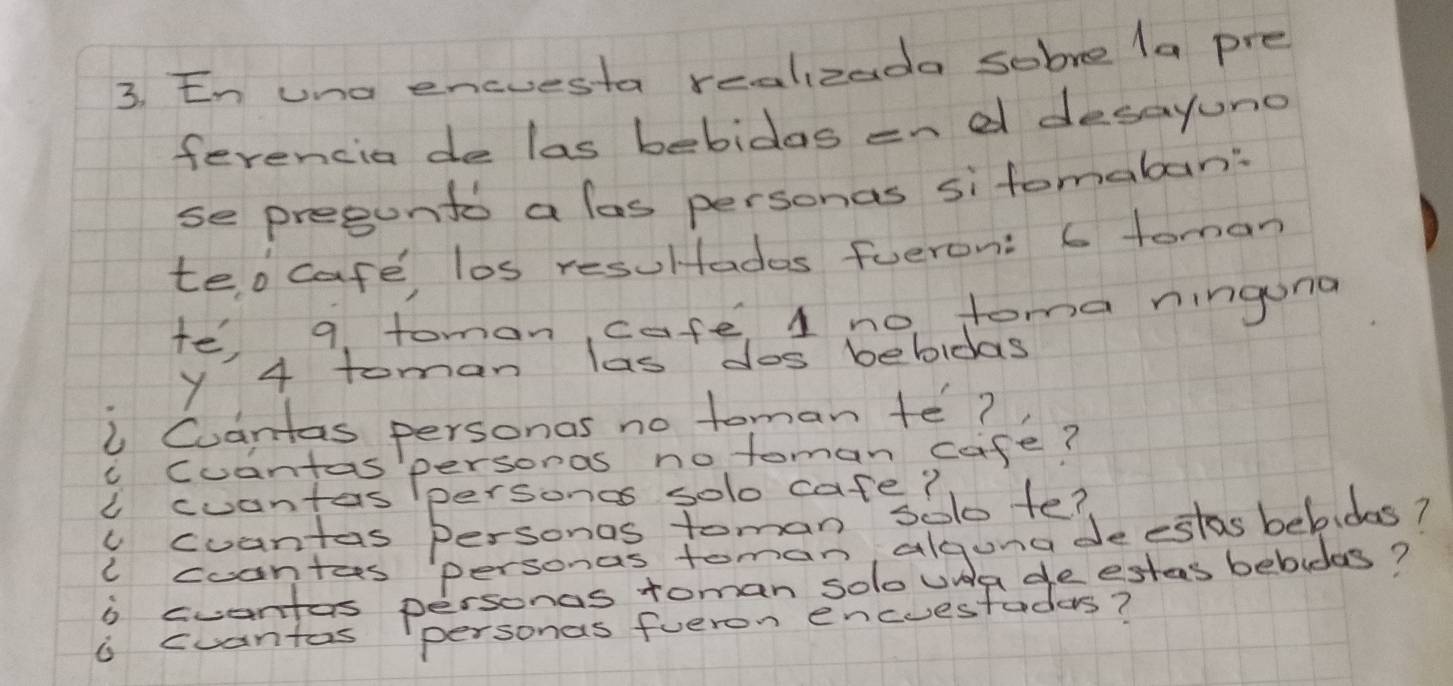 3. En una encuesta realizada sobre la pre
ferencia de las bebidas en el desayuno
se pregunto a las personas si tomaban:
te, o café, los resultados fueron: 6 toman
té, 9 toman café 1 no toma ninguna
y 4 toman las dos bebidas
¿ Cuántas personas no toman té?
¿ cuántas personas no toman café?
¿ cuantas personas solo cafe?
¿ cuantas personas toman solo te?
¿ cuantas personas toman alguna de estas bebidas?
¿ cuantas personas toman solo una de estas bebidas?
¿ cuantas personas fueron encuestadas?